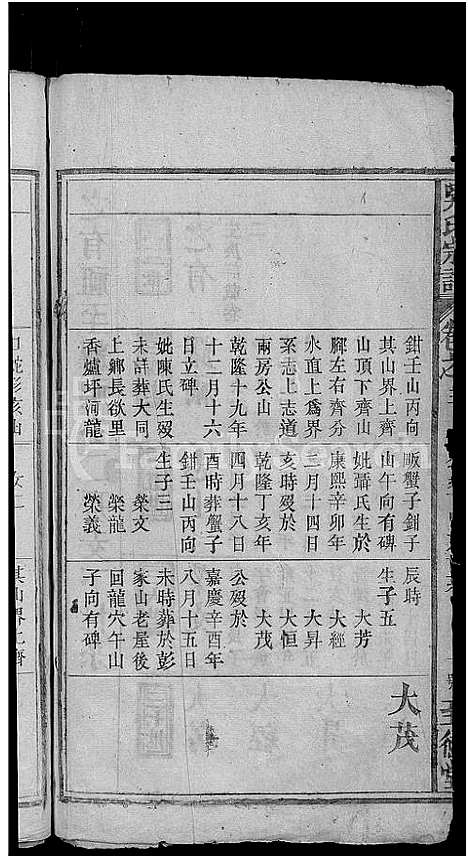 鉗壬山丙向
其山界上齊
山頂下齊山
腳左右齊分
水直上爲界
梁志上志道
兩房公山
乾隆十九年
十二月十六
日立碑
妣陳氏生歿
未詳葬大同
上鄉長欲里
香爐坪河龍
畈蟹子鉗子
山午向有碑
妣聶氏生於
康熙辛卯年
三月十四日
亥時歿於
乾隆丁亥年
四月十八日
酉時葬蟹子
鉗壬山丙向
生子三
榮文
榮龍
榮義
辰時
生子五
大芳
大經
大昇
大恒
大茂
公歿於
嘉慶辛酉年
八月十五日
未時葬於彭
家山老屋後
回龍穴午山
子向有碑
大茂